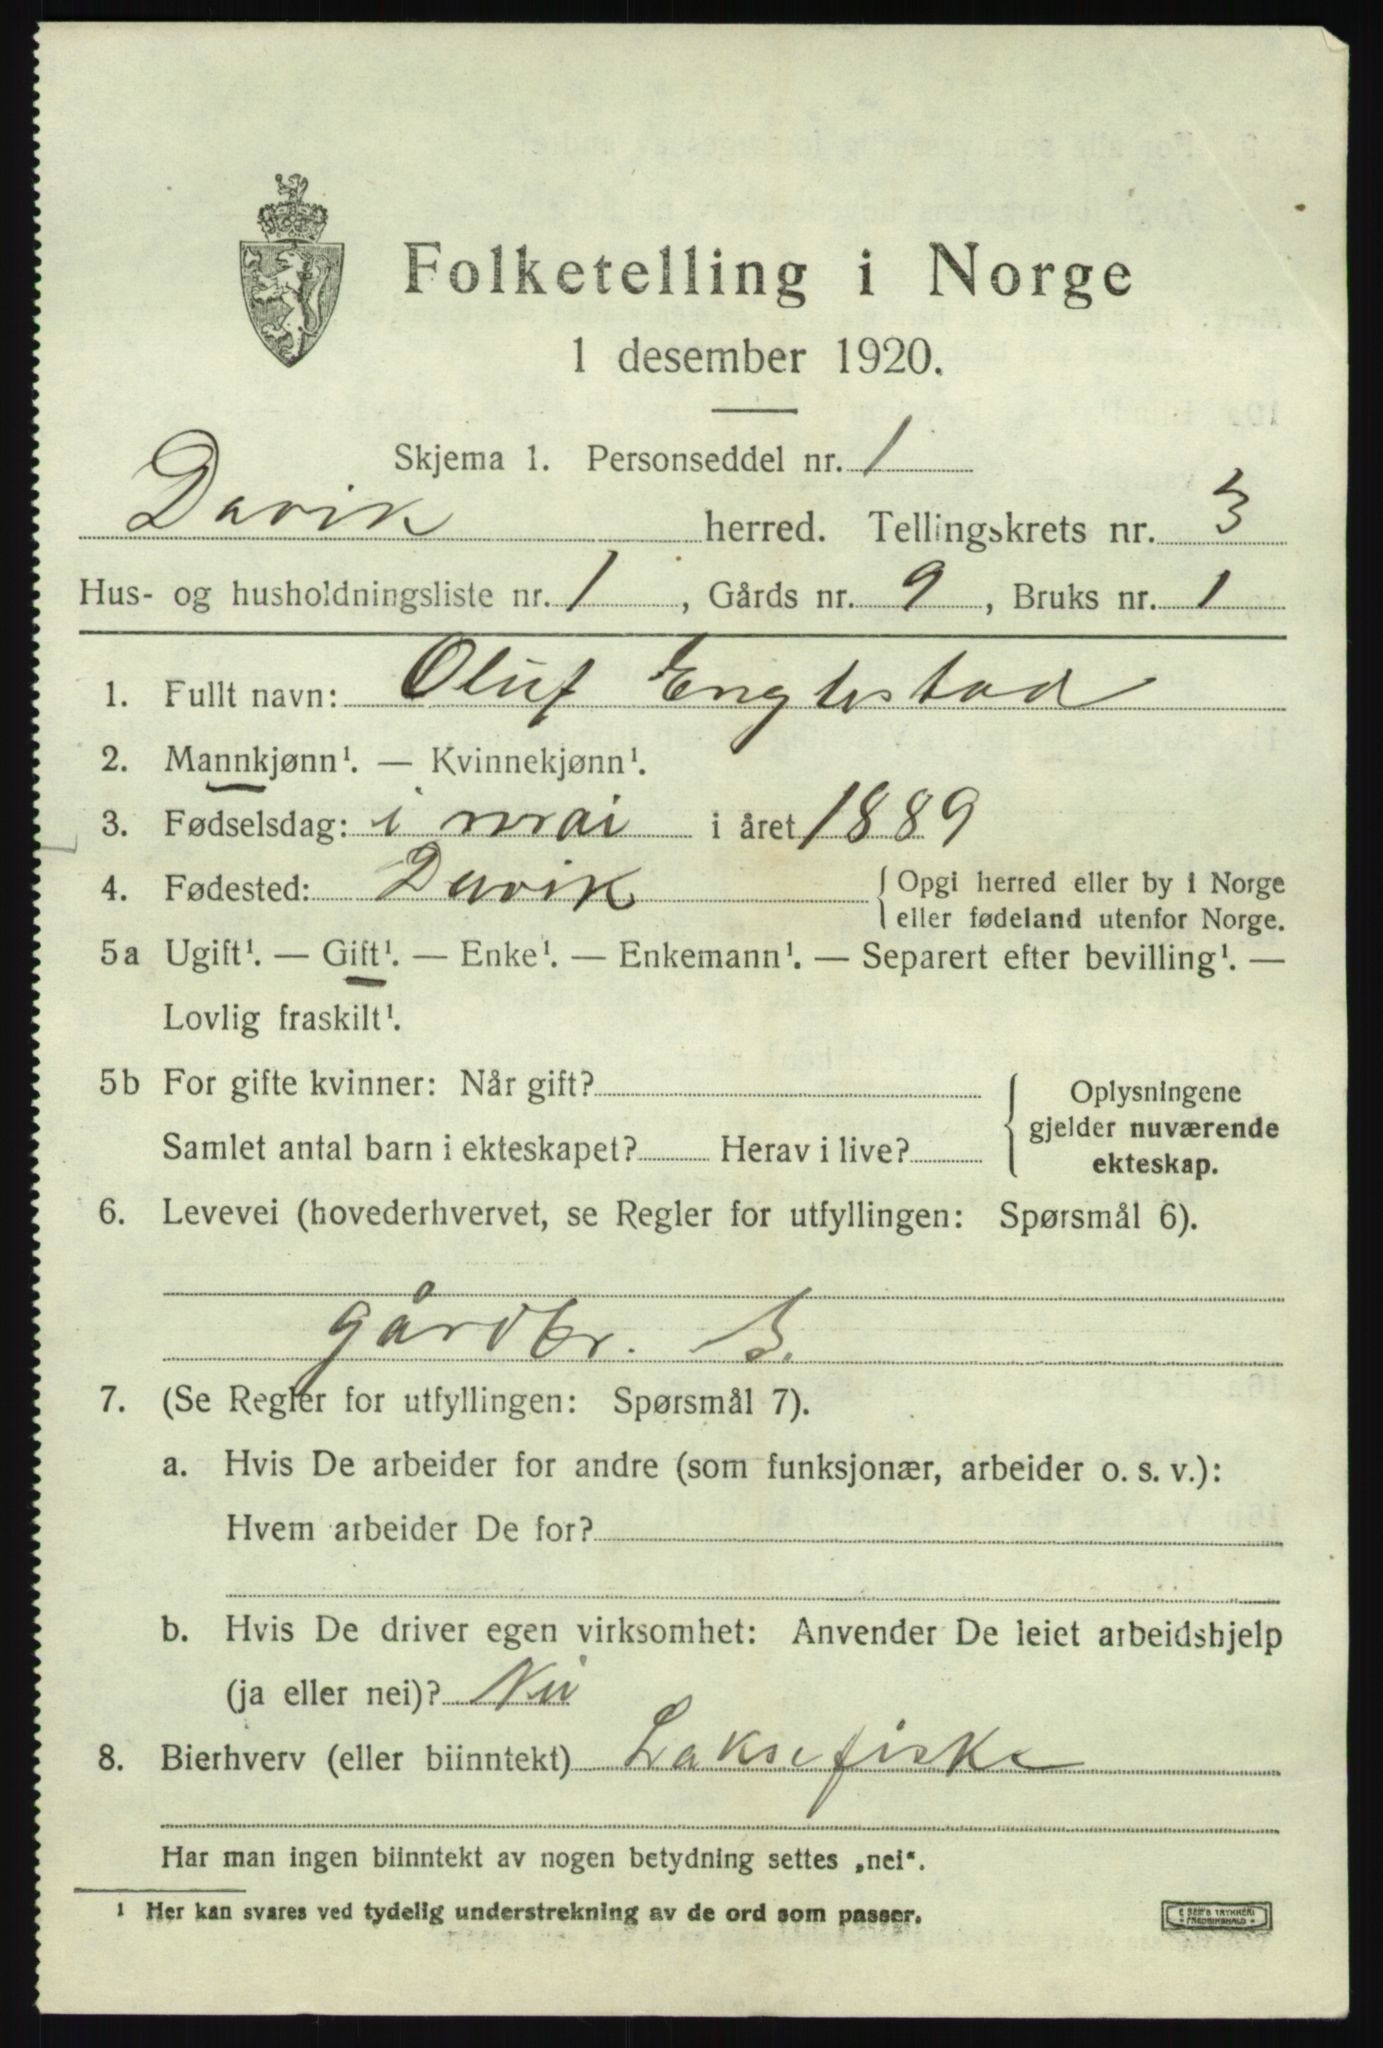 Folketelling i Norge
1 desember 1920.
Skjema 1. Personseddel nr. 1
Davik herred. Tellingskrets nr. 3
Hus- og husholdningsliste nr. 1, Gårds nr. 9, Bruks nr. 1
1. Fullt navn: Oluf Englestad
2. Mannkjønn¹. — Kvinnekjønn¹.
3. Fødselsdag: i mai i året 1889
4. Fødested: Davik { Opgi herred eller by i Norge
eller fødeland utenfor Norge.
5a Ugift¹. — Gift¹. — Enke¹. — Enkemann¹. — Separert efter bevilling¹. —
Lovlig fraskilt¹.
5b For gifte kvinner: Når gift? { Oplysningene
gjelder nuværende
Samlet antal barn i ekteskapet? Herav i live?
ekteskap.
6. Levevei (hovederhvervet, se Regler for utfyllingen: Spørsmål 6).
gårdbr. S.
7. (Se Regler for utfyllingen: Spørsmål 7).
a. Hvis De arbeider for andre (som funksjonær, arbeider o. s. v.):
Hvem arbeider De for?
b. Hvis De driver egen virksomhet: Anvender De leiet arbeidshjelp
(ja eller nei)? Nei
8. Bierhverv (eller biinntekt) Laksefiske
Har man ingen biinntekt av nogen betydning settes „nei“.
¹ Her kan svares ved tydelig understrekning av de ord som passer.
E SEM'S TRYKKERI
FREDRIKSHALD